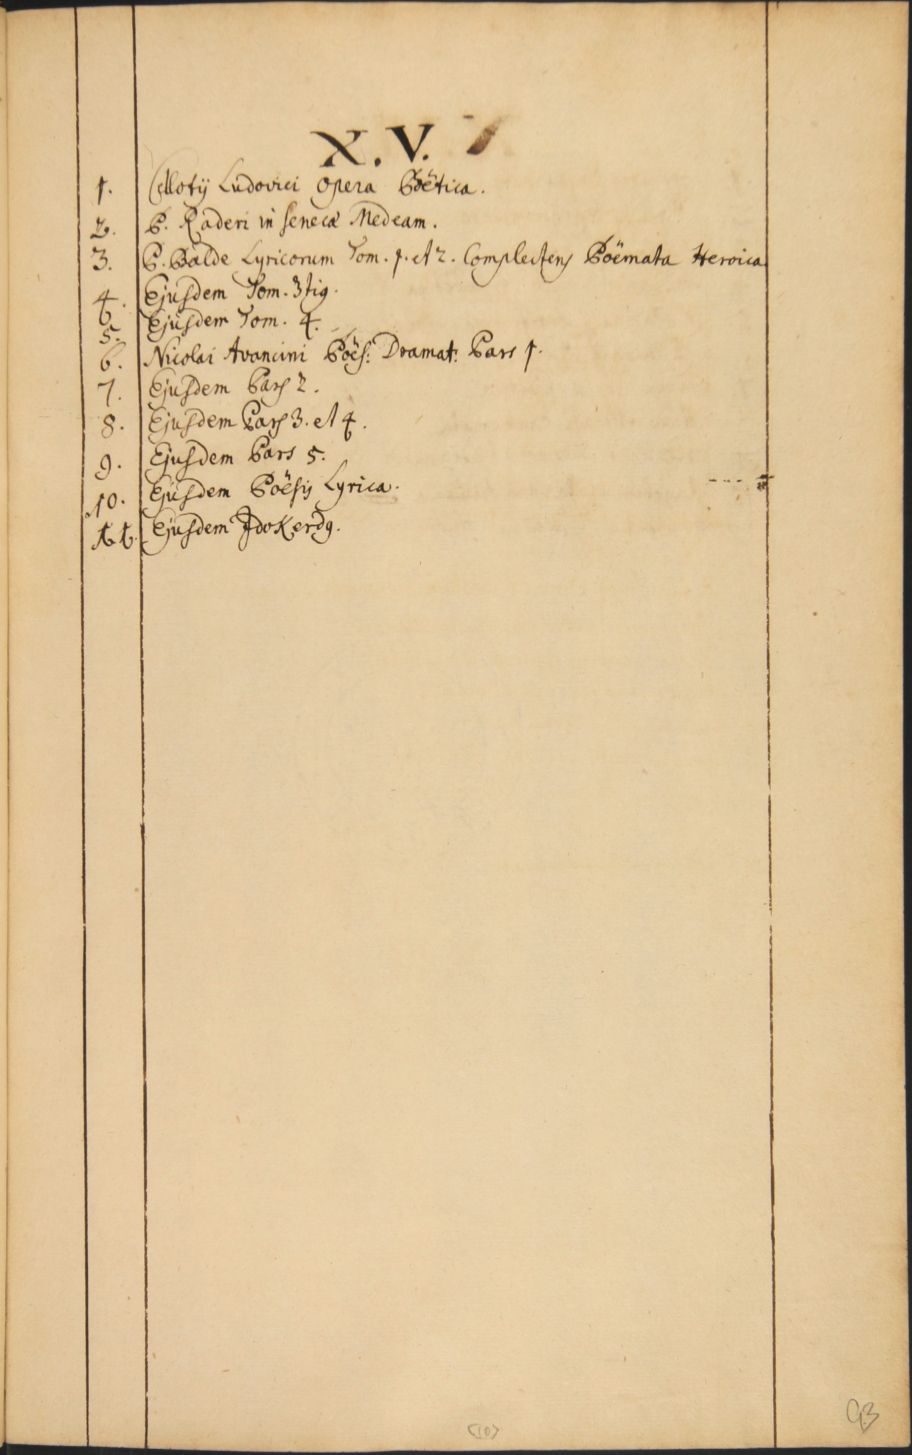 X.V.
1. Cellotij Ludovici Opera Poëtica.
2. P. Raderi in senecæ Medeam.
3. P. Balde Lyricorum Tom. 1. et 2. Complectens Poëmata Heroica
4. Ejusdem Tom. 3tig.
5. Ejusdem Tom. 4.
6. Nicolai Avancini Poës: Dramat: Pars 1.
7. Ejusdem Pars 2.
8. Ejusdem Pars 3. et 4.
9. Ejusdem Pars 5.
10. Ejusdem Poësis Lyrica.
11. Ejusdem
(10)
93